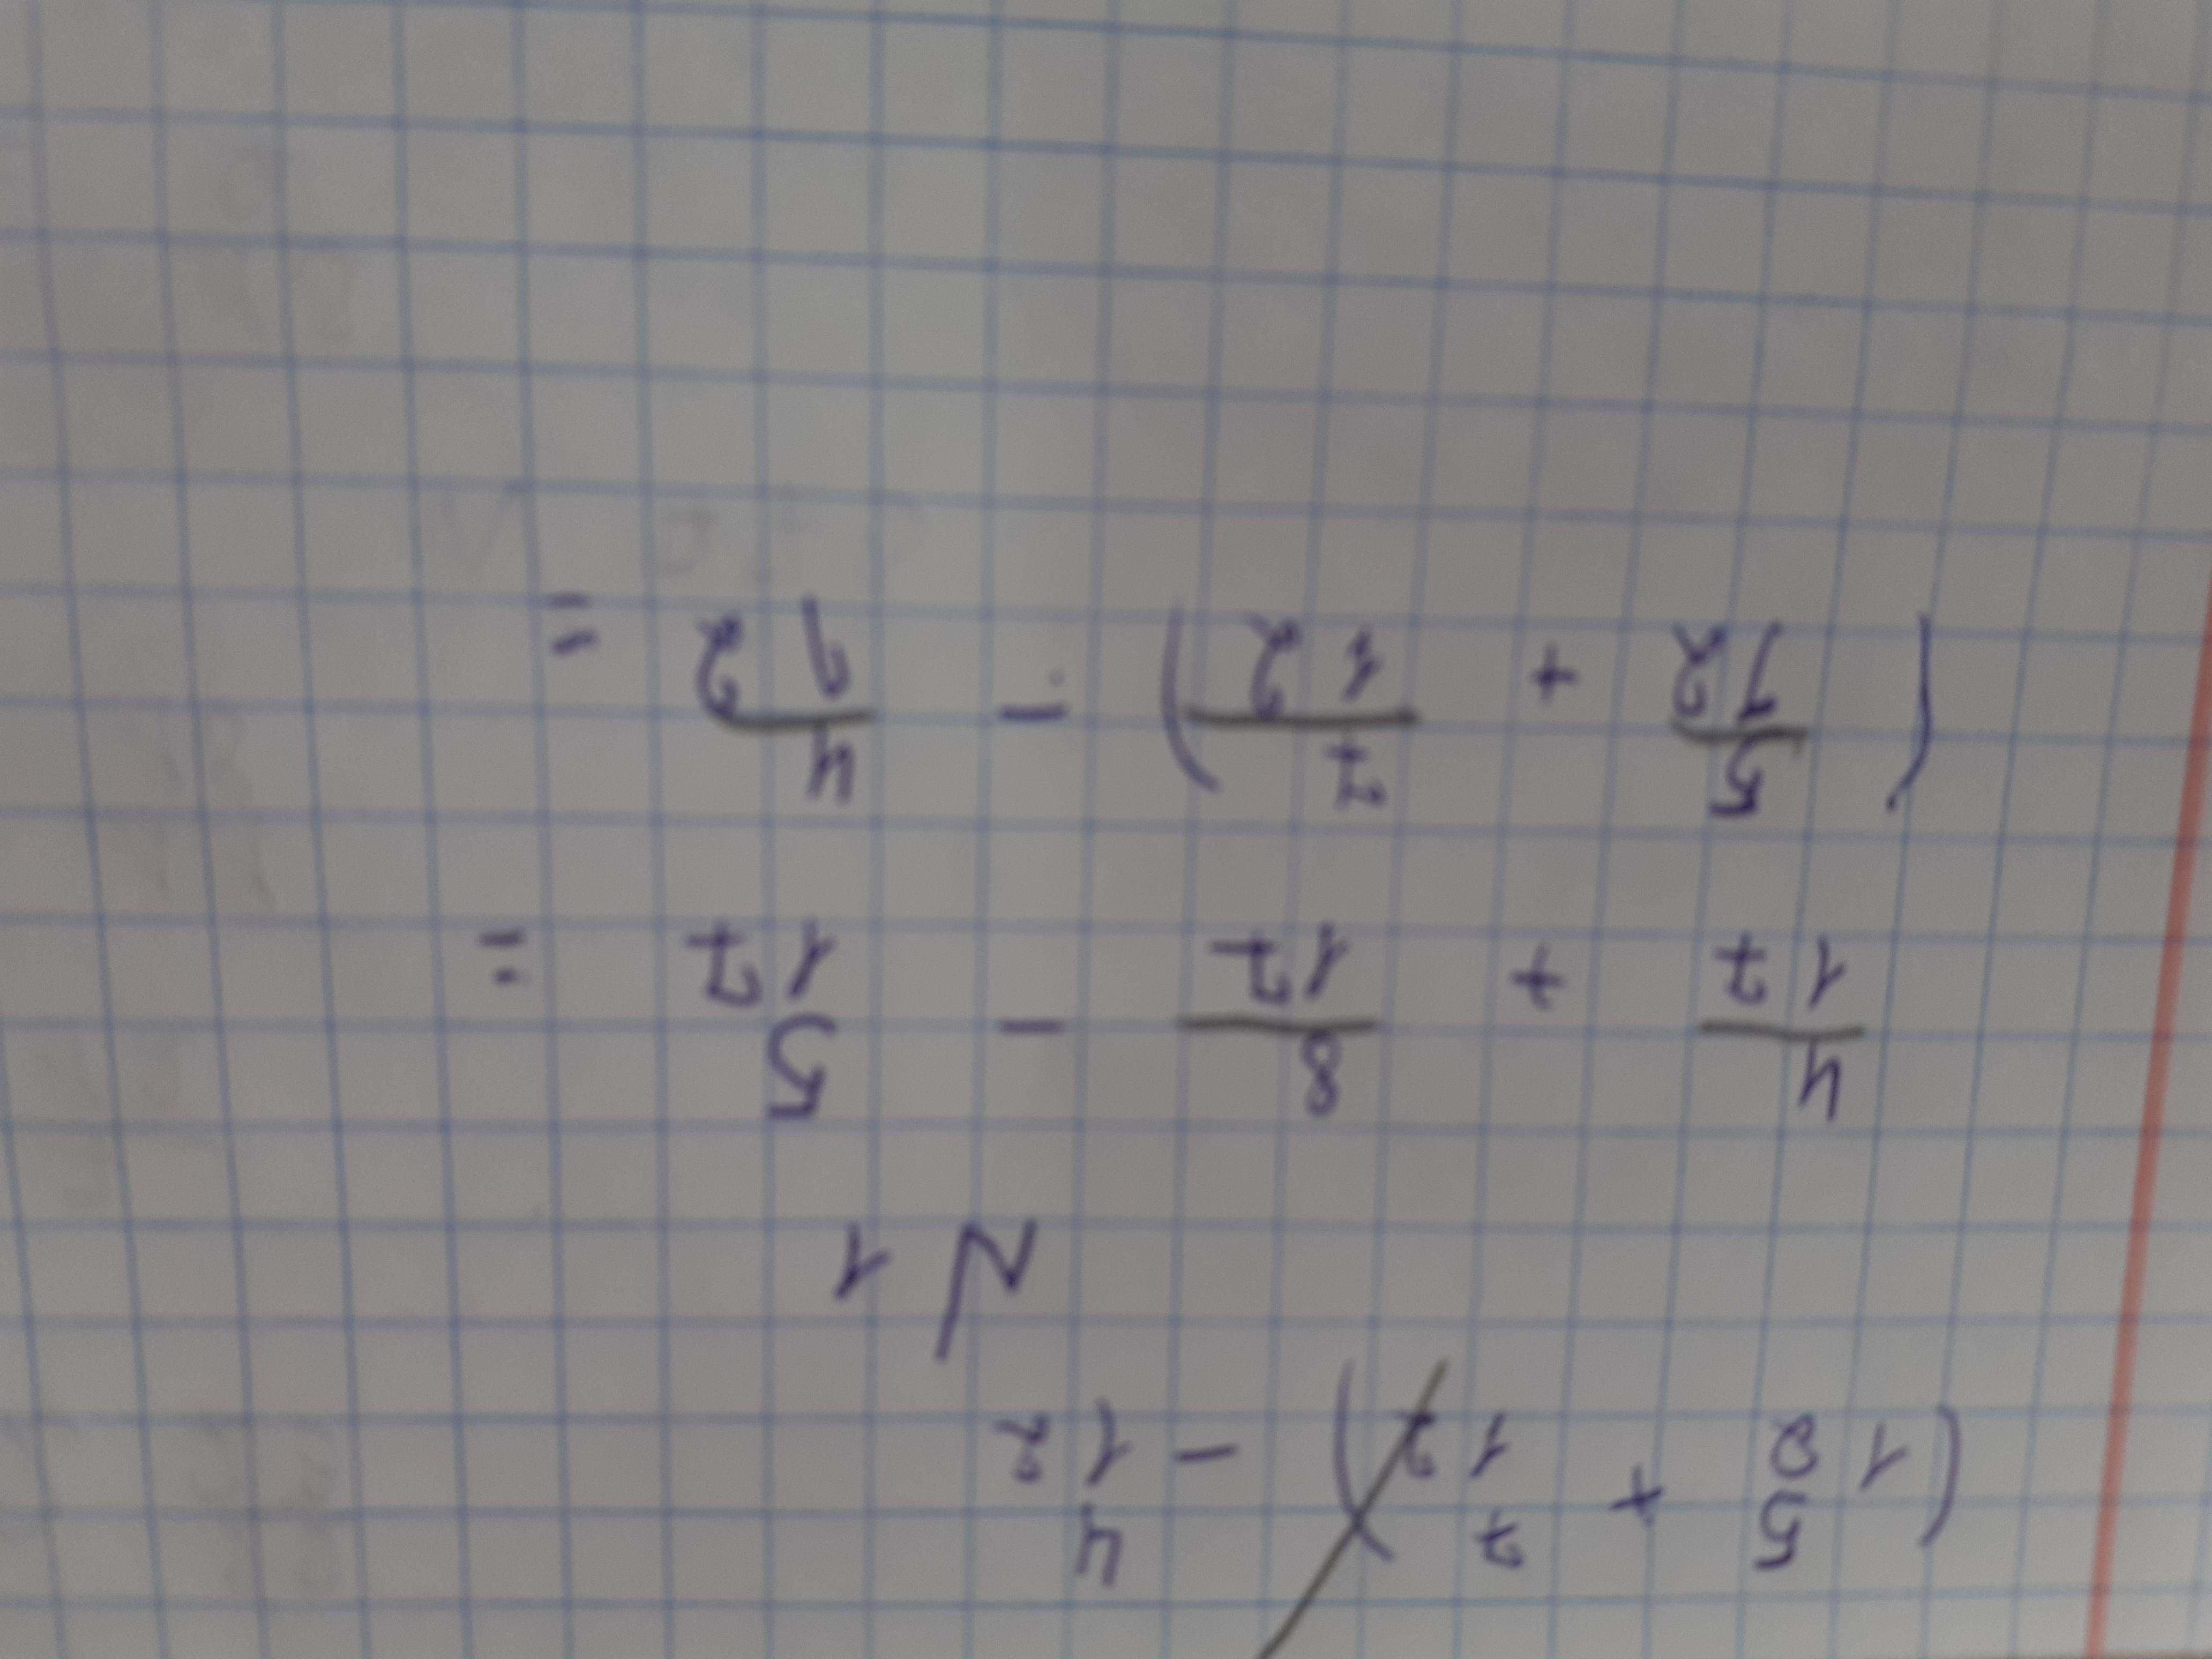 (5/18 + 7/12) - 4/12
N 1
4/17 + 8/17 - 5/17 =
(5/12 + 7/12) - 4/12 =